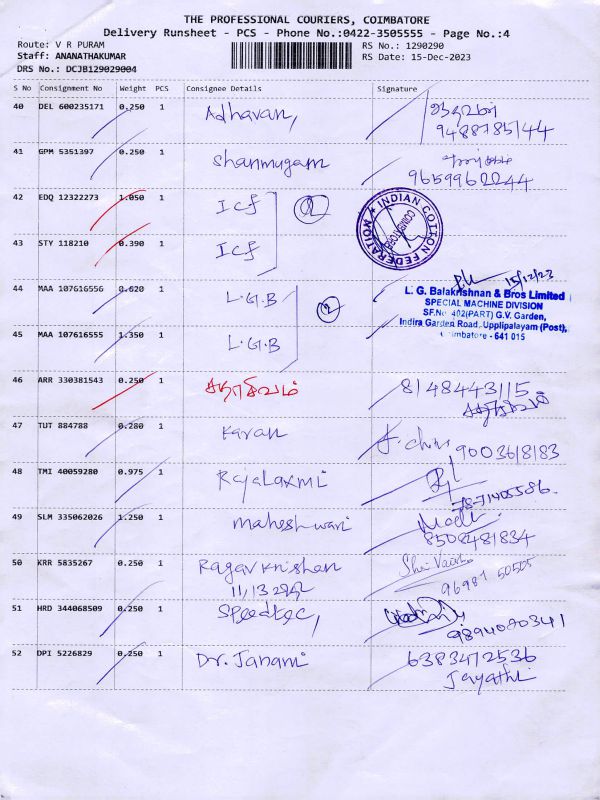 THE PROFESSIONAL COURIERS, COIMBATORE
Delivery Runsheet - PCS - Phone No.:0422-3505555 - Page No.:4
Route: V R PURAM
RS No.: 1290290
Staff: ANANATHAKUMAR
RS Date: 15-Dec-2023
DRS No.: DCJB129029004
S No Consignment No Weight PCS Consignee Details Signature
40 DEL 600235171 0.250 1 Adhavan,
9488785144
41 GPM 5351397 0.250 1 Shanmugam
9659962244
42 EDQ 12322273 1.050 1 Icf 2
INDIAN COTTON FEDERATION
COIMBATORE
43 STY 118210 0.390 1 Icf
44 MAA 107616556 0.620 1 L.G.B 2
15/12/23
L. G. Balakrishnan & Bros Limited
SPECIAL MACHINE DIVISION
SF.No 402(PART) G.V. Garden,
Indira Garden Road, Upplipalayam (Post),
Coimbatore - 641 015
45 MAA 107616555 1.350 1 L.G.B
46 ARR 330381543 0.250 1 சதாசிவம் 8148443115
சதாசிவம்
47 TUT 884788 0.280 1 Karan 9003618183
48 TMI 40059280 0.975 1 Rajalaxmi
49 SLM 335062026 1.250 1 maheshwari
8508481834
50 KRR 5835267 0.250 1 Ragavkrishan
96981 50505
51 HRD 344068509 0.250 1 Speedtec,
9894090341
52 DPI 5226829 0.250 1 Dr. Janani 6383472536
Jayathi